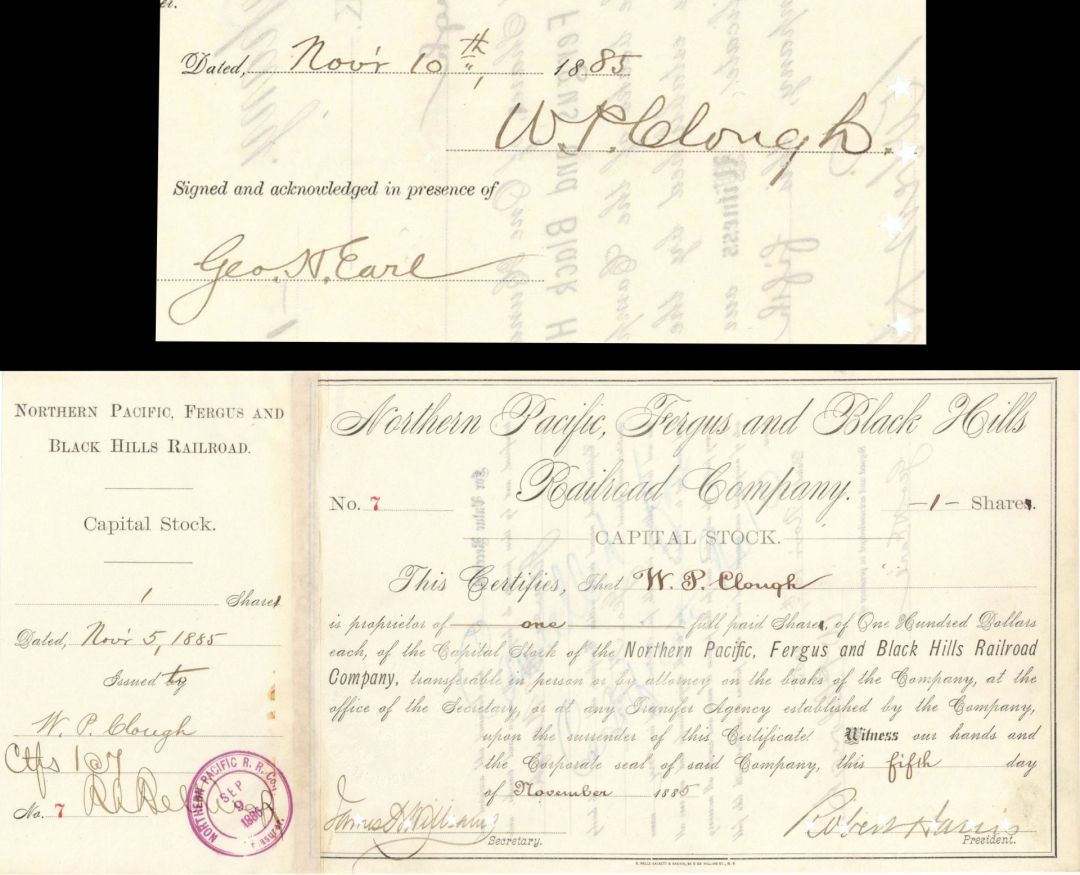 er.
Dated, Nov'r 10th, 1885
W. P. Clough.
Signed and acknowledged in presence of
Geo. H. Earl
NORTHERN PACIFIC, FERGUS AND
BLACK HILLS RAILROAD.
Capital Stock.
1 Share
Dated, Nov'r 5, 1885
Issued to
W. P. Clough
Ctfs 1 @ 7
No. 7
NORTHERN PACIFIC R. R. Co.,
SEP
1886
Northern Pacific, Fergus and Black Hills
Railroad Company.
No. 7
-1- Share.
CAPITAL STOCK.
This Certifies, That W. P. Clough
is proprietor of one full paid Share, of One Hundred Dollars
each, of the Capital Stock of the Northern Pacific, Fergus and Black Hills Railroad
Company, transferable in person or by attorney on the books of the Company, at the
office of the Secretary, or at any Transfer Agency established by the Company,
upon the surrender of this Certificate. Witness our hands and
the Corporate seal of said Company, this fifth day
of November 1885
James H. Williams Robert Harris
Secretary. President.